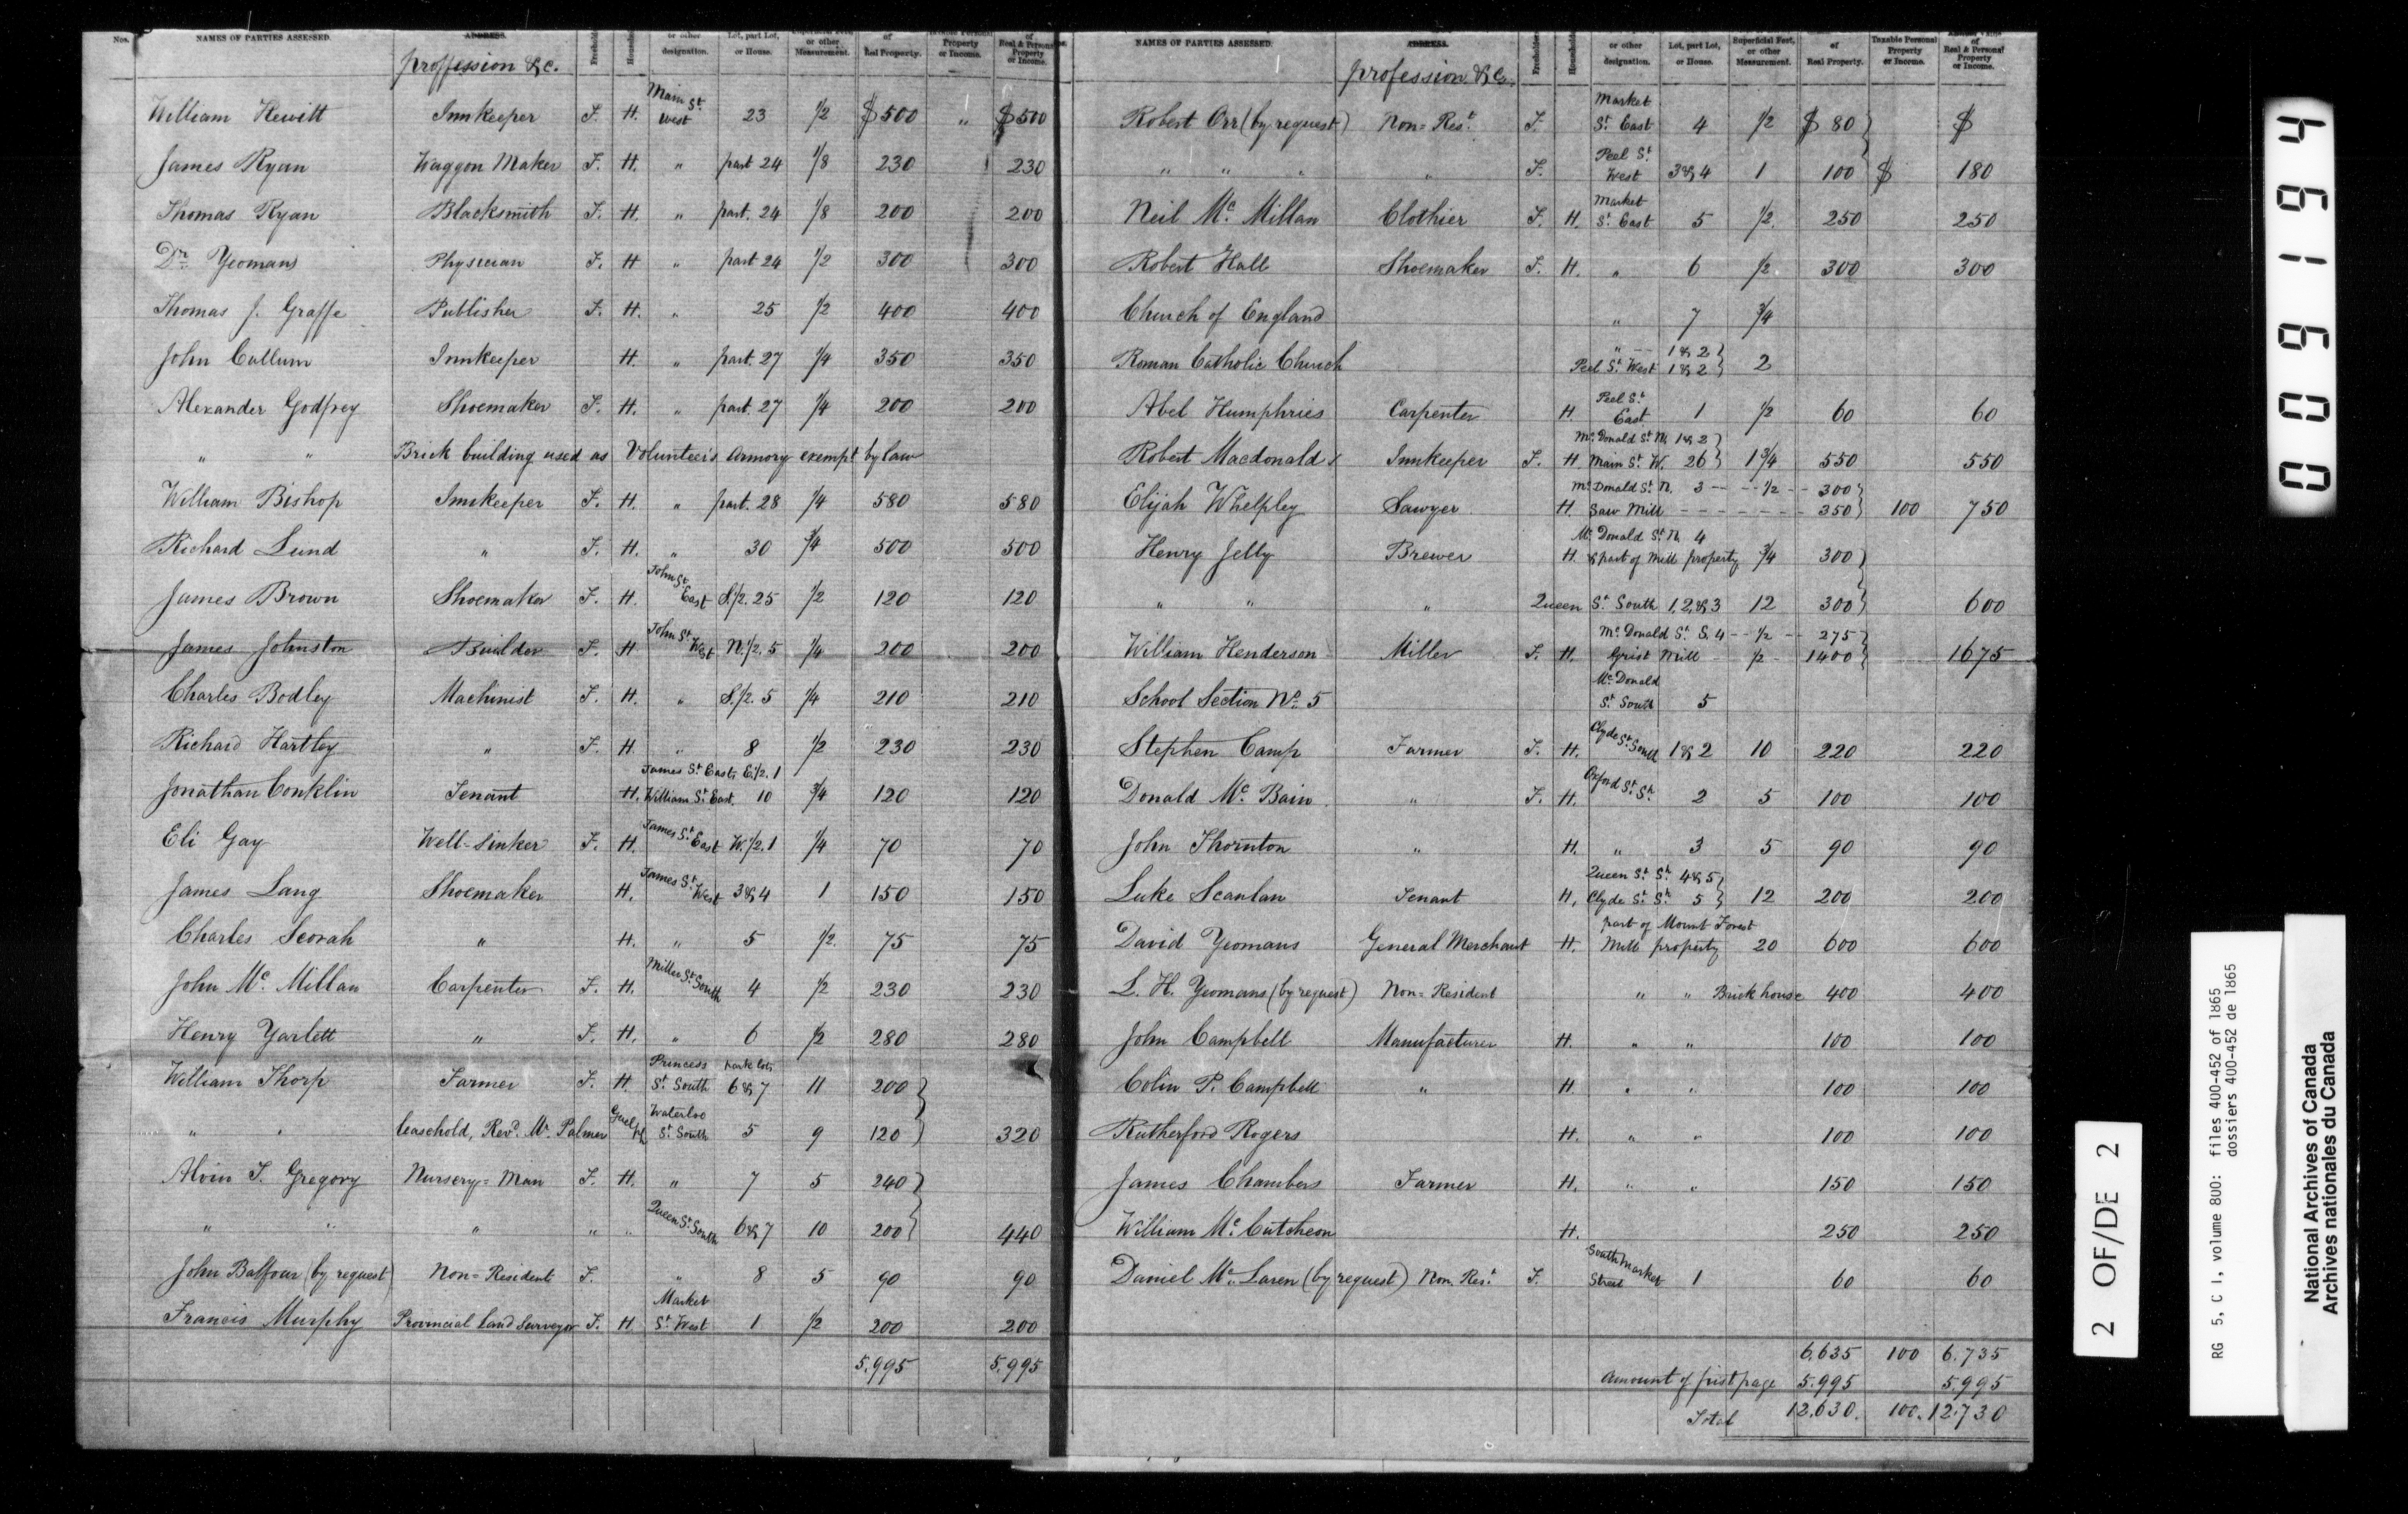 Nos. NAMES OF PARTIES ASSESSED. ADDRESS. or other designation. Lot, part Lot, or House. or other Measurement. of Real Property. Property or Income. of Real & Personal Property or Income.
proffession &c.
William Hewitt Innkeeper F. H. Main St. West 23 1/2 $500 " $500
James Ryan Waggon Maker F. H. " part 24 1/8 230 230
Thomas Ryan Blacksmith F. H. " part. 24 1/8 200 200
Dr. Yeomans Physician F. H " part 24 1/2 300 300
Thomas J. Graffe Publisher F. H. " 25 1/2 400 400
John Callum Innkeeper H. " part. 27 1/4 350 350
Alexander Godfrey Shoemaker F. H. " part. 27 1/4 200 200
" " Brick building used as Volunteers Armory exempt by law
William Bishop Innkeeper F. H. " part. 28 1/4 580 580
Richard Lund " F. H. " 30 3/4 500 500
James Brown Shoemaker F. H. John St. East S.1/2. 25 1/2 120 120
James Johnston Builder F. H John St. West N.1/2. 5 1/4 200 200
Charles Bodley Machinist F. H. " S.1/2. 5 1/4 210 210
Richard Hartley " F. H. " 8 1/2 230 230
James St. East, E.1/2. 1
Jonathan Conklin Tenant H. William St. East. 10 3/4 120 120
Eli Gay Well-Sinker F. H. James St. East W.1/2. 1 1/4 70 70
James Lang Shoemaker H. James St. West 3 & 4 1 150 150
Charles Scorah " H. " 5 1/2. 75 75
John Mc. Millan Carpenter F. H. Miller St. South 4 1/2 230 230
Henry Yarlett " F. H. " 6 1/2 280 280
William Thorp Farmer F. H. Princess St. South park lots 6 & 7 11 200
" " leasehold, Revd. Mr. Palmer Guelph Waterloo St. South 5 9 120 320
Alvin T. Gregory Nursery=Man F. H. " 7 5 240
" " " " " Queen St. South 6 & 7 10 200 440
John Balfour (by request) Non=Resident F. " 8 5 90 90
Francis Murphy Provincial Land Surveyor F. H. Market St. West 1 1/2 200 200
5.995 5.995
NAMES OF PARTIES ASSESSED. ADDRESS. Freeholder Householder or other designation. Lot, part Lot, or House. Superficial Feet, or other Measurement. of Real Property. Taxable Personal Property or Income. of Real & Personal Property or Income.
profession &c.
Robert Orr (by request) Non=Rest. F. Market St. East 4 1/2 $ 80 $
" " " " F. Peel St. West 3 & 4 1 100 $ 180
Neil Mc. Millan Clothier F. H. Market St. East 5 1/2. 250 250
Robert Hall Shoemaker F. H. " 6 1/2. 300 300
Church of England " 7 3/4
" -- 1 & 2
Roman Catholic Church Peel St. West 1 & 2 2
Abel Humphries Carpenter H Peel St. East 1 1/2 60 60
Mc. Donald St. N. 1 & 2
Robert Macdonald Innkeeper F. H. Main St. W. 26 1 3/4 550 550
Mc. Donald St. N. 3 -- -- 1/2 -- 300
Elijah Whelpley Sawyer H. Saw Mill - - - - - - - 350 100 750
Mc. Donald St. N. 4
Henry Jelly Brewer H. & part of Mill property 3/4 300
" " " Queen St. South 1, 2, & 3 12 300 600
Mc. Donald St. S. 4 -- 1/2 -- 275
William Henderson Miller F. H. Grist Mill - 1/2 - 1400 1675
School Section No. 5 Mc. Donald St. South 5
Stephen Camp Farmer F. H. Clyde St. South 1 & 2 10 220 220
Donald Mc. Bain " F. H. Oxford St. Sh. 2 5 100 100
John Thornton " H. " 3 5 90 90
Queen St. Sh. 4 & 5
Luke Scanlan Tenant H, Clyde St. Sh. 5 12 200 200
part of Mount Forest
David Yeomans General Merchant H. Mill property 20 600 600
L. H. Yeomans (by request) Non=Resident " " Brick house 400 400
John Campbell Manufacturer H. " " 100 100
Colin P. Campbell " H. " " 100 100
Rutherford Rogers H. " " 100 100
James Chambers Farmer H. " " 150 150
William Mc. Cutcheon H. 250 250
Daniel Mc. Laren (by request) Non. Rest. F. South Market Street 1 60 60
6.635 100 6.735
Amount of first page 5.995 5.995
Total 12.630. 100. 12.730
0009 1694
2 OF/DE 2
RG 5, C 1, volume 800: files 400-452 of 1865
dossiers 400-452 de 1865
National Archives of Canada
Archives nationales du Canada